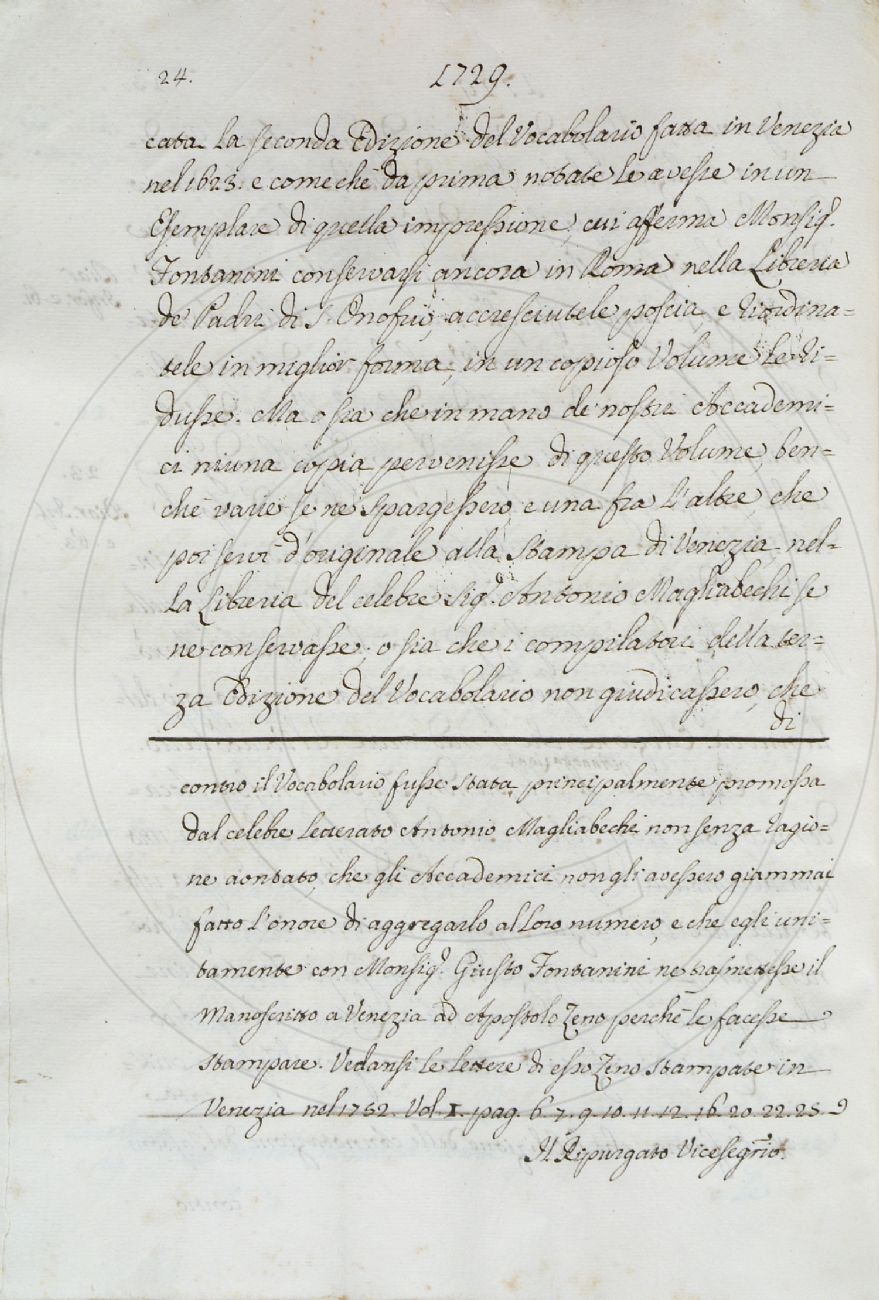 24.
1729.
cata la seconda Edizione del Vocabolario fatta in Venezia
nel 1623. e come che da prima notate le avesse in un
Esemplare di quella impressione, cui afferma Monsig.r
Fontanini conservarsi ancora in Roma nella Libreria
de' Padri di S. Onofrio, accresciutele poscia e riordina=
tele in miglior forma, in un copioso Volume le ri=
dusse. Ma o sia che in mano de' nostri Accademi=
ci niuna copia pervenisse di questo Volume, ben=
chè varie se ne spargessero, e una fra l'altre che
poi servì d'originale alla stampa di Venezia, nel=
la Libreria del celebre Sig.r Antonio Magliabechi se
ne conservasse; o sia che i compilatori della ter=
za Edizione del Vocabolario non giudicassero, che
di
contro il Vocabolario fusse stata principalmente promossa
dal celebre Letterato Antonio Magliabechi non senza ragio=
ne aontato, che gli Accademici non gli avessero giammai
fatto l'onore di aggregarlo al loro numero, e che egli uni=
tamente con Monsig.r Giusto Fontanini ne trasmettesse il
Manoscritto a Venezia ad Apostolo Zeno perchè le facesse
stampare. Vedansi le Lettere di esso Zeno stampate in
Venezia nel 1752. Vol. I. pag. 6. 7. 9. 10. 11. 12. 16. 20. 22. 25.
Il Ripurgato Viceseg.rio